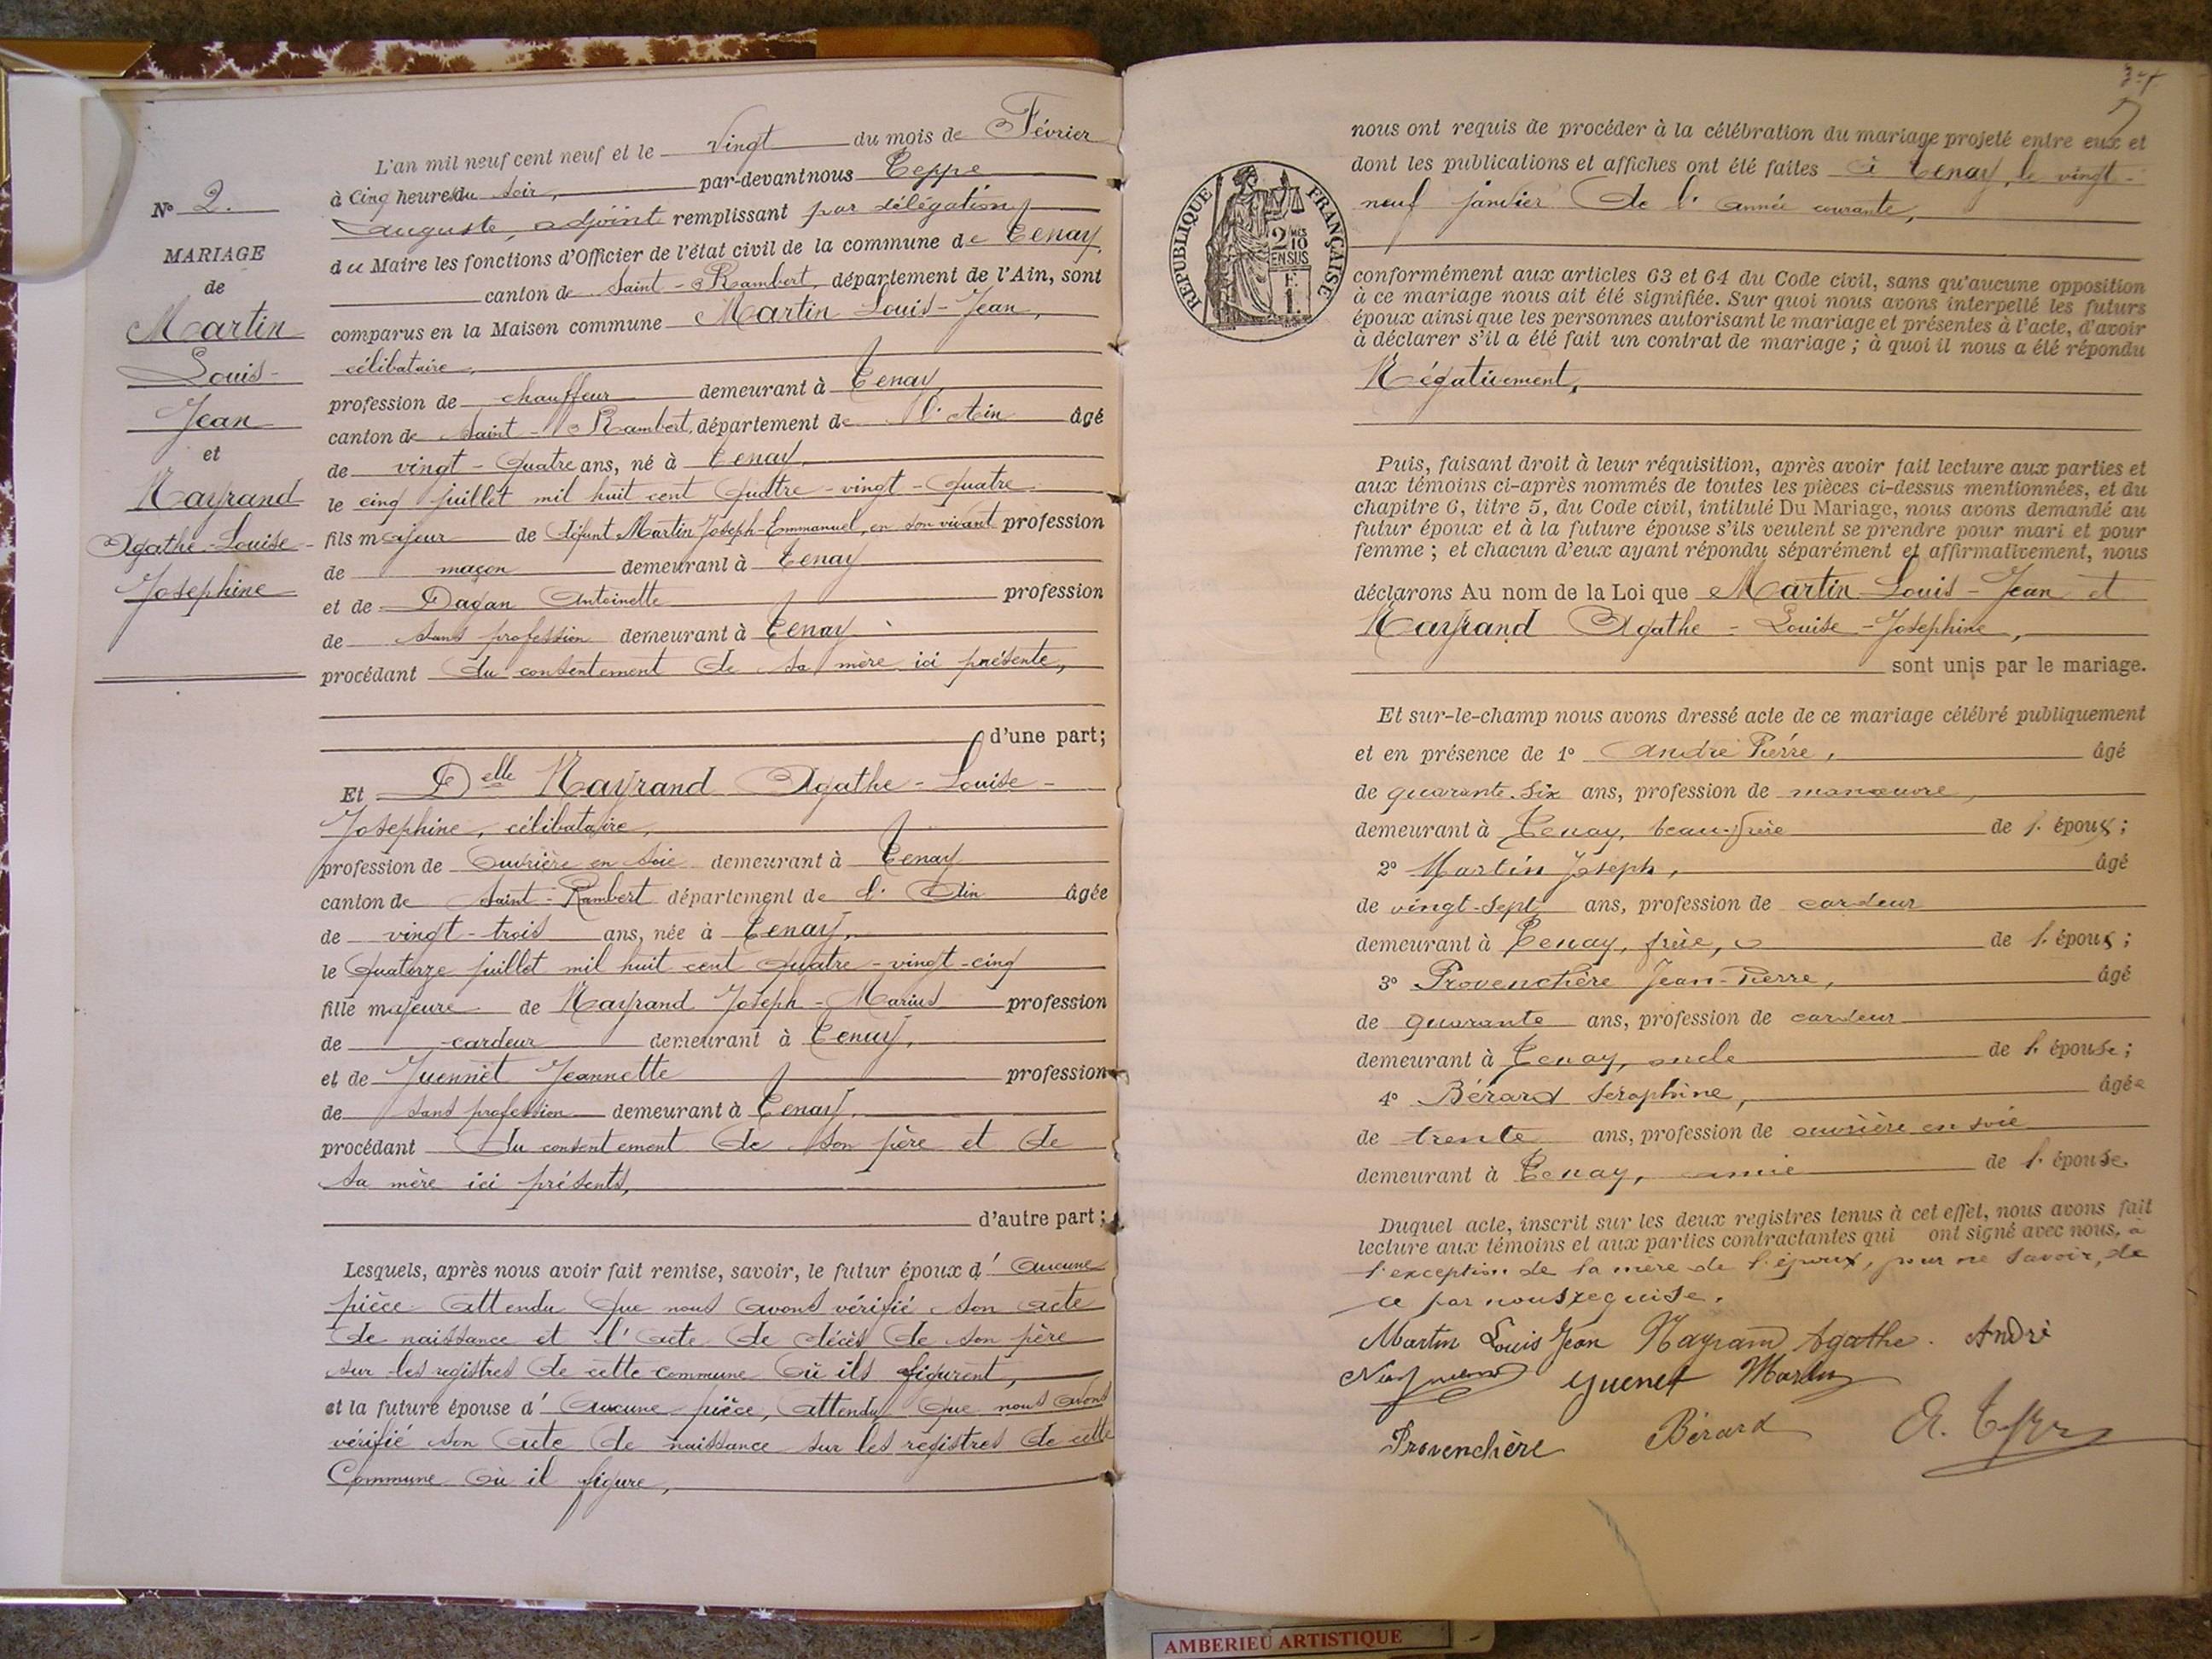 N° 2.
MARIAGE
de
Martin
Louis-
Jean
et
Nayrand
Agathe-Louise-
Josephine
L'an mil neuf cent neuf et le vingt du mois de Février
à Cinq heures du soir, par-devant nous Teppe
Auguste, adjoint remplissant par délégation
du Maire les fonctions d'Officier de l'état civil de la commune de Tenay,
canton de Saint-Rambert, département de l'Ain, sont
comparus en la Maison commune Martin Louis-Jean,
célibataire,
profession de chauffeur demeurant à Tenay,
canton de Saint-Rambert, département de l'Ain âgé
de vingt-quatre ans, né à Tenay,
le cinq juillet mil huit cent quatre-vingt-quatre
fils majeur de défunt Martin Joseph-Emmanuel, en son vivant profession
de maçon demeurant à Tenay
et de Dagan Antoinette profession
de sans profession demeurant à Tenay
procédant du consentement de sa mère ici présente,
d'une part;
Et Delle Nayrand Agathe-Louise-
Josephine, célibataire,
profession de Ouvrière en soie demeurant à Tenay
canton de Saint-Rambert département de l'Ain âgée
de vingt-trois ans, née à Tenay,
le quatorze juillet mil huit cent quatre-vingt-cinq
fille majeure de Nayrand Joseph-Marius profession
de cardeur demeurant à Tenay,
et de Juennet Jeannette profession
de sans profession demeurant à Tenay,
procédant du consentement de son père et de
sa mère ici présents,
d'autre part;
Lesquels, après nous avoir fait remise, savoir, le futur époux d'aucune
pièce attendu que nous avons vérifié son acte
de naissance et l'acte de décès de son père
sur les registres de cette commune où ils figurent,
et la future épouse d'aucune pièce, attendu que nous avons
vérifié son acte de naissance sur les registres de cette
Commune où il figure,
nous ont requis de procéder à la célébration du mariage projeté entre eux et
dont les publications et affiches ont été faites à Tenay, le vingt-
neuf janvier de l'année courante,
RÉPUBLIQUE FRANÇAISE
2/10 MES
EN SUS
F.
1.
conformément aux articles 63 et 64 du Code civil, sans qu'aucune opposition
à ce mariage nous ait été signifiée. Sur quoi nous avons interpellé les futurs
époux ainsi que les personnes autorisant le mariage et présentes à l'acte, d'avoir
à déclarer s'il a été fait un contrat de mariage; à quoi il nous a été répondu
Négativement,
Puis, faisant droit à leur réquisition, après avoir fait lecture aux parties et
aux témoins ci-après nommés de toutes les pièces ci-dessus mentionnées, et du
chapitre 6, titre 5, du Code civil, intitulé Du Mariage, nous avons demandé au
futur époux et à la future épouse s'ils veulent se prendre pour mari et pour
femme; et chacun d'eux ayant répondu séparément et affirmativement, nous
déclarons Au nom de la Loi que Martin Louis-Jean et
Nayrand Agathe-Louise-Josephine,
sont unis par le mariage.
Et sur-le-champ nous avons dressé acte de ce mariage célébré publiquement
et en présence de 1° André Pierre, âgé
de quarante-six ans, profession de manœuvre,
demeurant à Tenay, beau-frère de l'époux;
2° Martin Joseph, âgé
de vingt-sept ans, profession de cardeur
demeurant à Tenay, frère, de l'époux;
3° Provenchère Jean-Pierre, âgé
de quarante ans, profession de cardeur
demeurant à Tenay, oncle de l'épouse;
4° Bérard Séraphine, âgée
de trente ans, profession de ouvrière en soie
demeurant à Tenay, amie de l'épouse.
Duquel acte, inscrit sur les deux registres tenus à cet effet, nous avons fait
lecture aux témoins et aux parties contractantes qui ont signé avec nous, à
l'exception de la mère de l'époux, pour ne savoir, de
ce par nous requise.
Martin Louis Jean Nayrand Agathe. André
Guenet Martin
Provenchère Bérard
AMBERIEU ARTISTIQUE